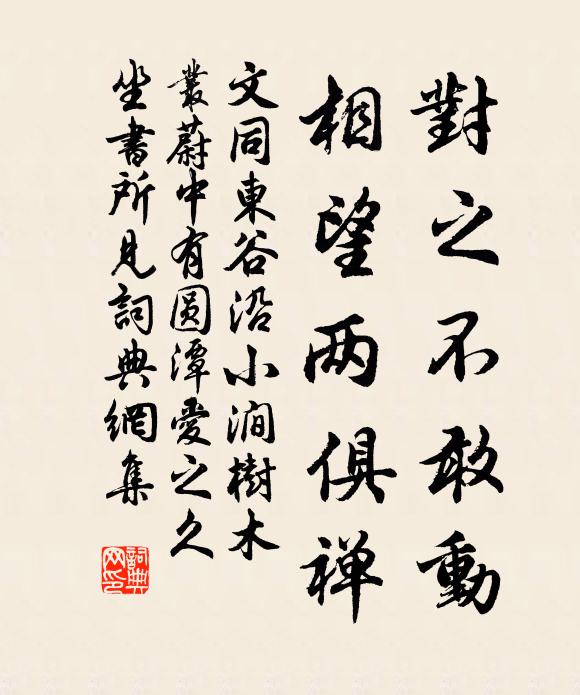 對之不敢動
相望两俱禅
文同東谷沿小澗樹木
叢蔚中有圓潭愛之久
坐書所見詞典網集
詞典网印